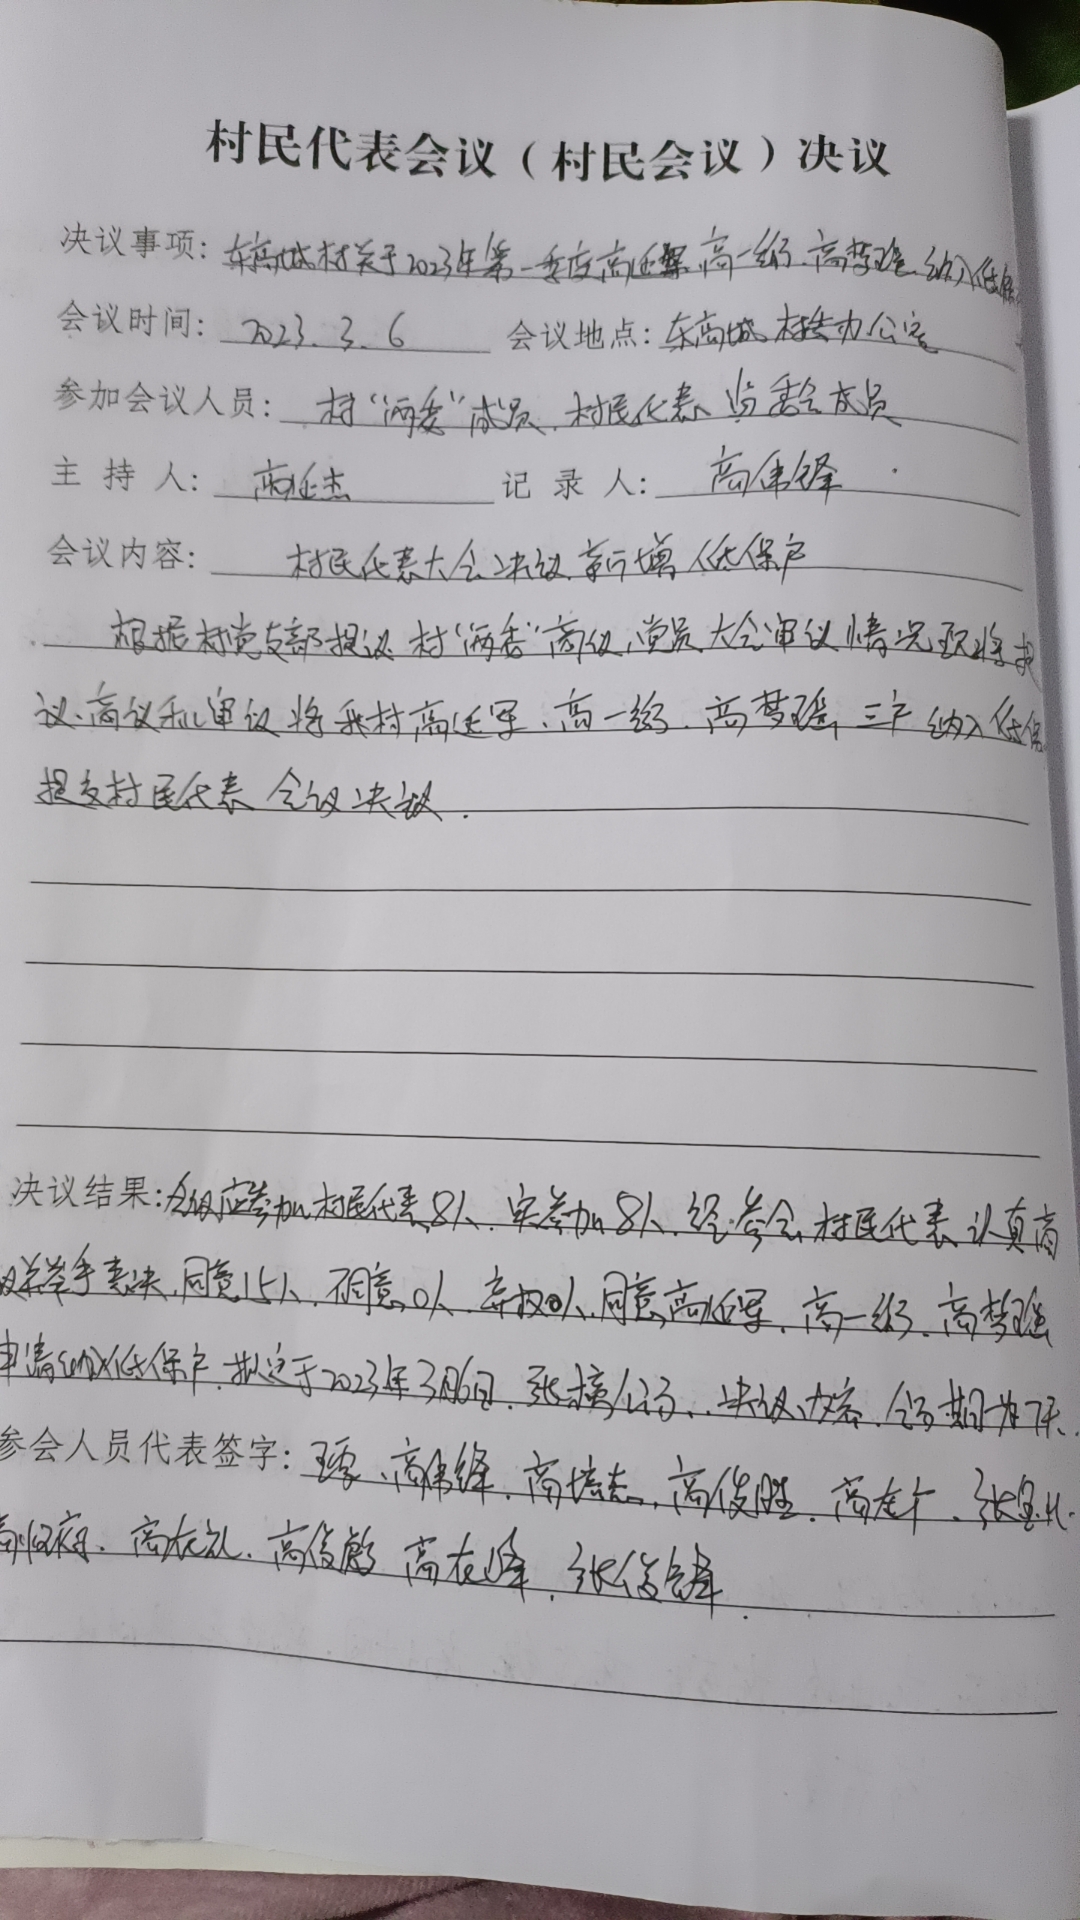 村民代表会议（村民会议）决议
决议事项：东高城村关于2023年第一季度高延军、高一纷、高梦瑶、纳入低保
会议时间：2023.3.6 会议地点：东高城村委办公室
参加会议人员：村“两委”成员、村民代表、监委会成员
主持人：高延杰 记录人：高伟锋
会议内容：村民代表大会决议、新增低保户
根据村党支部提议、村“两委”商议、党员大会审议情况现将提
议、商议和审议将我村高延军、高一纷、高梦瑶，三户纳入低保
提交村民代表会议决议.
决议结果：会议应参加村民代表8人、实参加8人、经参会村民代表认真商
议并举手表决、同意15人、不同意0人、弃权0人、同意高延军、高一纷、高梦瑶
申请纳入低保户、拟定于2023年3月6日、张榜公示、决议内容、公示期为7天、
参会人员代表签字：高伟锋、高培志、高俊胜、张
高在礼、高俊 高在峰、张俊锋.